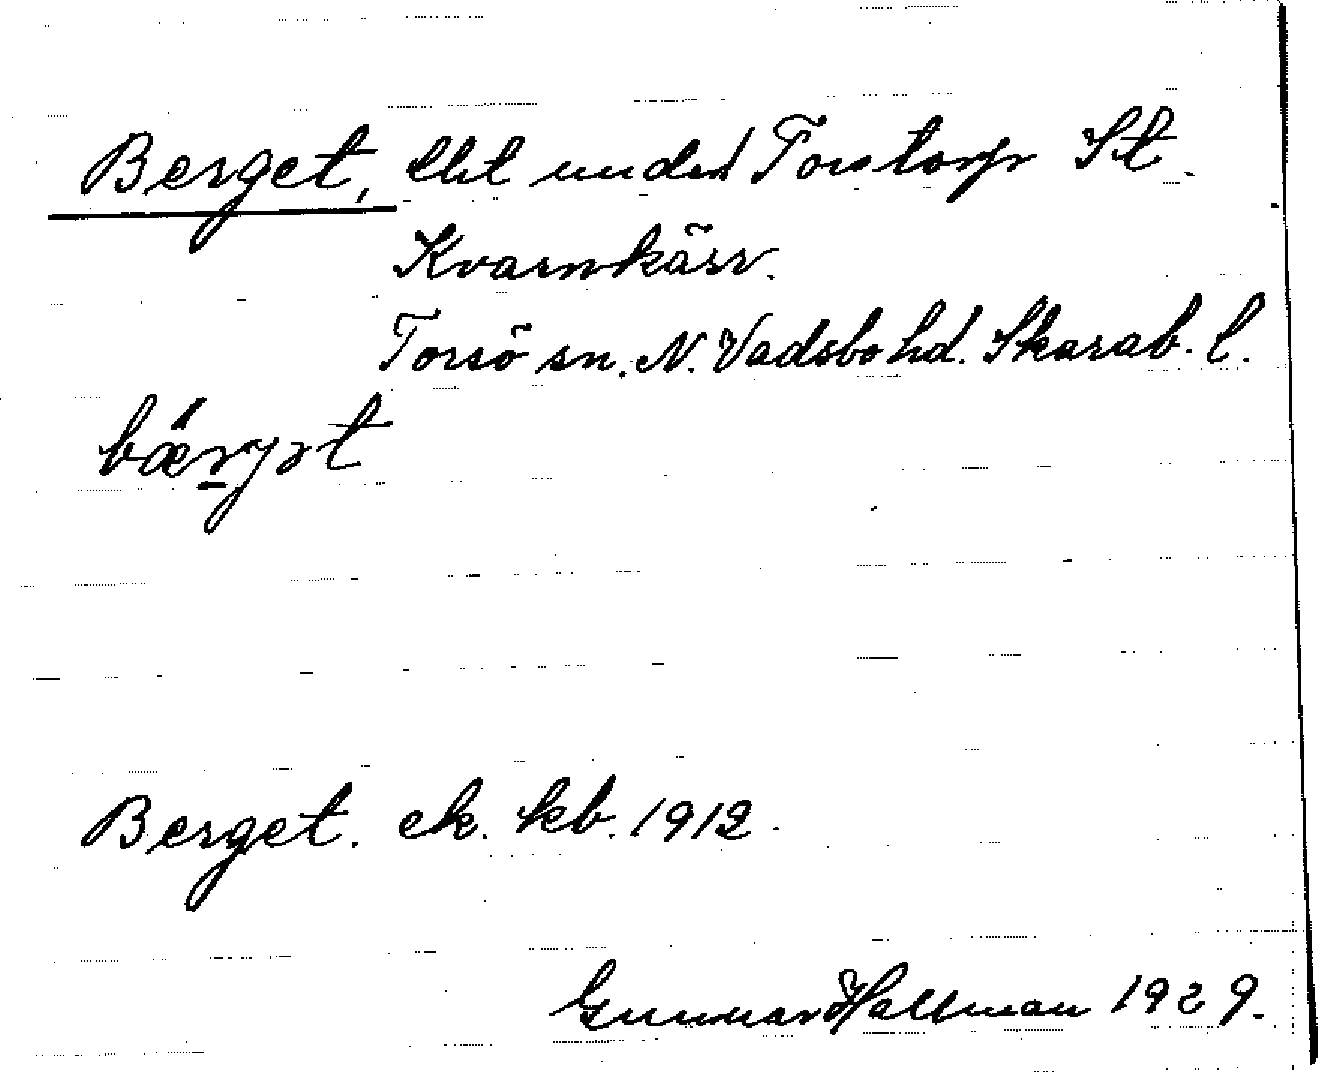 Berget, lht under Torstorp St.
Kvarnkärr.
Torsö sn. N. Vadsbo hd. Skarab. l.
Berget. ek. kb. 1912.
Gunnar Hallman 1929.